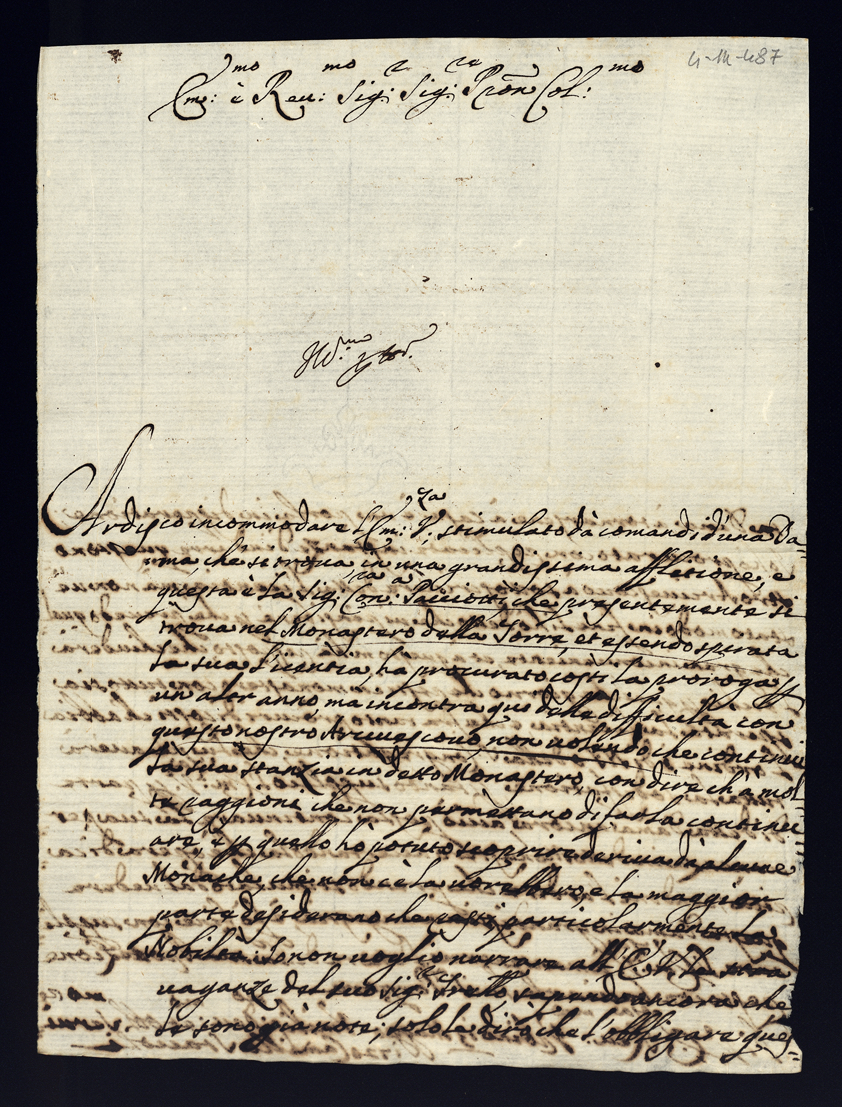 4-14-487
Em:mo è Reu:mo Sig:r Sig:re Pron Col:mo
Ardisco incommodare l'Em:za V: stimulato dà comandi d'una Da=
ma che si troua in una grandissima afflitione, e
questa è la Sig:ra Con:a Pacciotti che presentemente si
troua nel Monastero della Torre, et essendo spirata
la sua licentia, hà procurato costì la proroga
un altr'anno, mà incontra qui delle difficultà con
questo nostro Arciuescouo, non uolendo che continui
la sua stanzia in detto Monastero, con dire ch'à mol=
te raggioni che non permettano di farla continu
are, & quello hò potuto scoprire deriua dà alcune
Monache, che non ce la uorebbero, e la maggior
parte desiderano che resti, particolarmente la
Nobiltà. Io non uoglio narrare all'E.V. le stra
uaganze del suo Sig:re fratello sapendo ancora che
le sono già note; solo le dirò che l'obbligare ques=